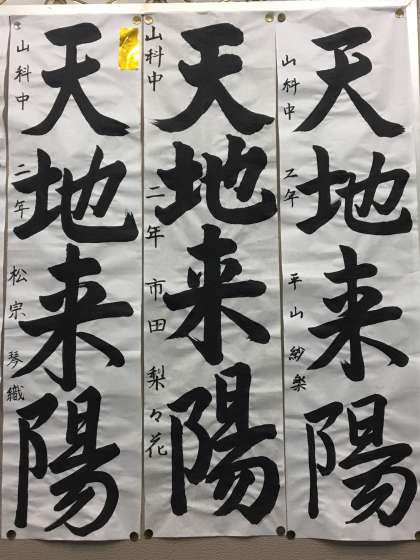 天地来陽
山科中 二年 平山紗楽
天地来陽
山科中 二年 市田梨々花
天地来陽
山科中 二年 松宗琴織